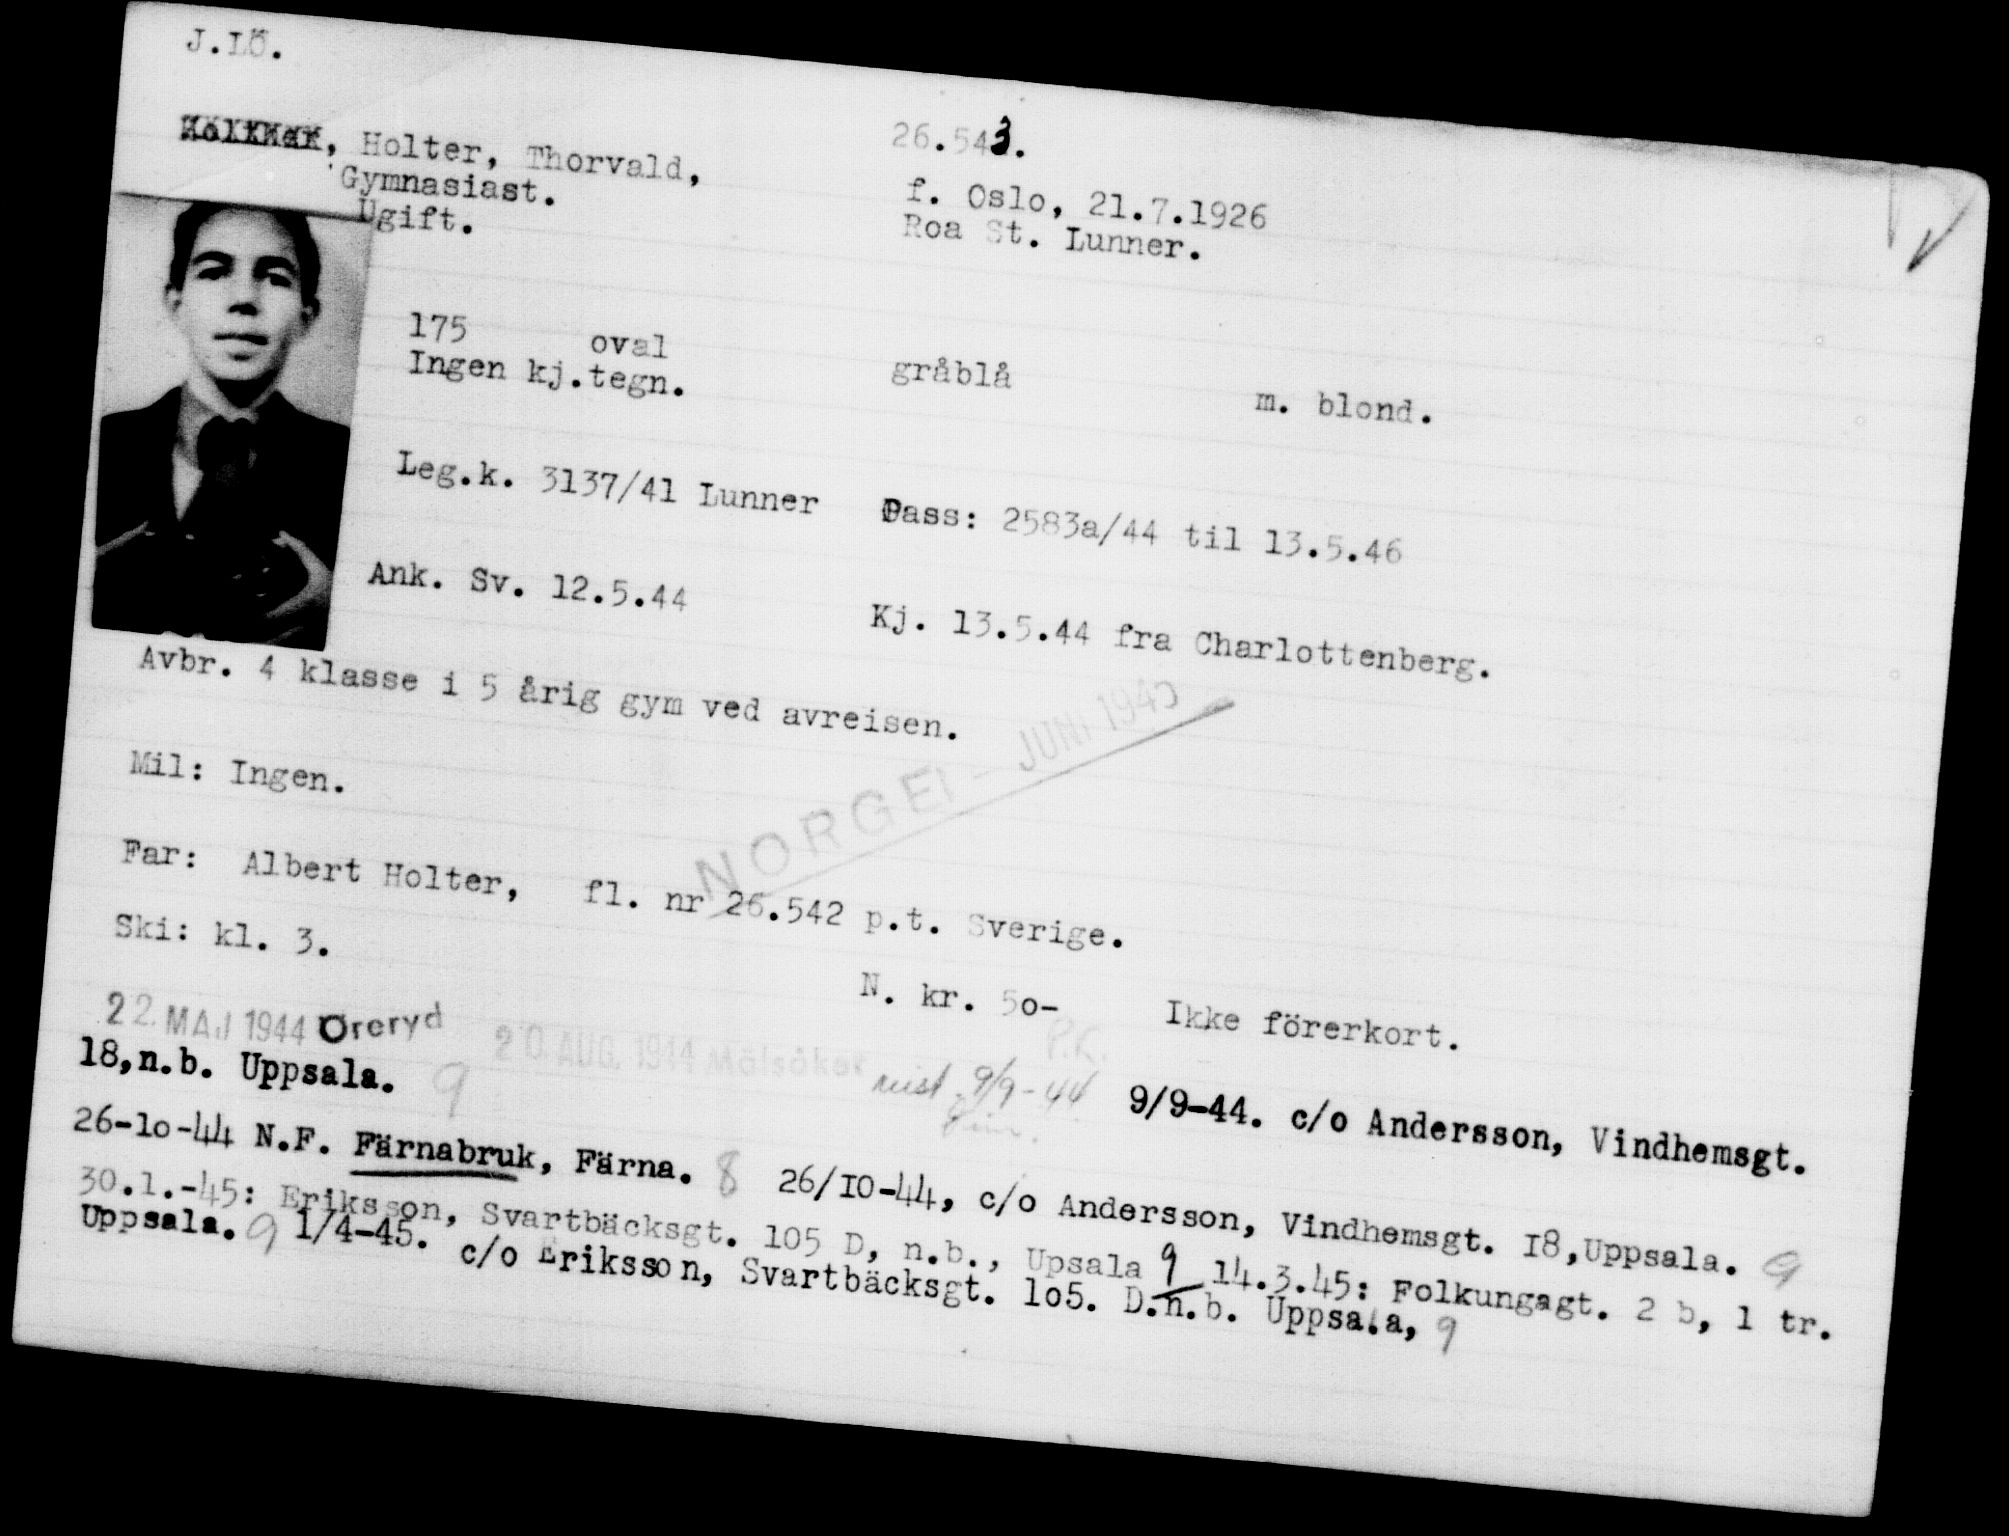 J.LÖ.
Holter, Thorvald, 26.543.
Gymnasiast. f. Oslo, 21.7.1926
Ugift. Roa St. Lunner.
175 oval gråblå m. blond.
Ingen kj.tegn.
Leg.k. 3137/41 Lunner Pass: 2583a/44 til 13.5.46
Ank. Sv. 12.5.44 Kj. 13.5.44 fra Charlottenberg.
Avbr. 4 klasse i 5 årig gym ved avreisen.
NORGE - JUNI 1945
Mil: Ingen.
Far: Albert Holter, fl. nr 26.542 p.t. Sverige.
Ski: kl. 3. N. kr. 5o- Ikke förerkort.
P.K.
22. MAJ 1944 Öreryd 20 AUG. 1944 Mälsåker 9/9-44 9/9-44. c/o Andersson, Vindhemsgt.
18,n.b. Uppsala. 9
26-1o-44 N.F. Färnabruk, Färna. 8 26/I0-44, c/o Andersson, Vindhemsgt. I8,Uppsala. 9
30.1.-45: Eriksson, Svartbäcksgt. 105 D, n.b., Upsala 9 14.3.45: Folkungagt. 2 b, 1 tr.
Uppsala. 9 1/4-45. c/o Eriksson, Svartbäcksgt. lo5. D.n.b. Uppsala, 9